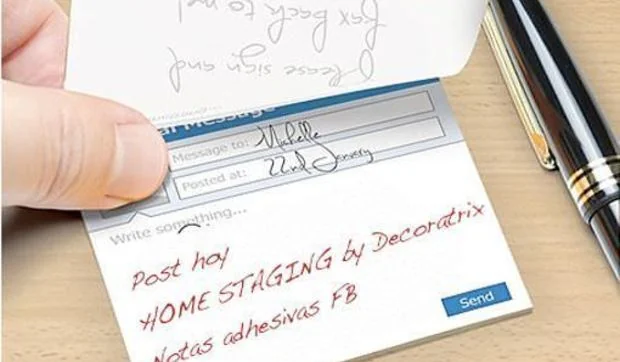 Please sign and
fax back to me!
al Message
Message to: Michelle
Posted at: 22nd January
Write something...
Post hoy
HOME STAGING by Decoratrix
Notas adhesivas FB
Send